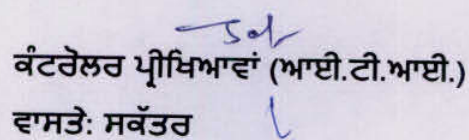 ਕੰਟਰੋਲਰ ਪ੍ਰੀਖਿਆਵਾਂ (ਆਈ.ਟੀ.ਆਈ.)
ਵਾਸਤੇ: ਸਕੱਤਰ